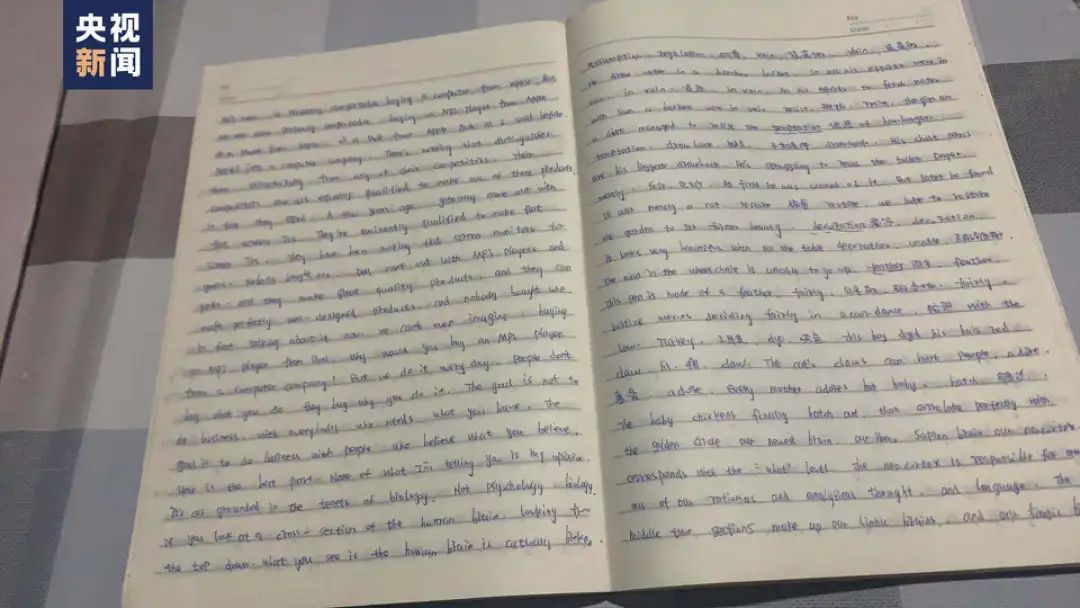 央视
新闻
No
Date
this room is perfectly comfortable buying a computer from Apple. But
we are also perfectly comfortable buying an MP3 player from Apple
or a phone from Apple, or a DVR from Apple. But as I said before,
Apple's just a computer company. There's nothing that distinguishes
them structurally from any of their competitors. Their
competitors are all equally qualified to make all of these products.
in fact they tried. A few years ago Gateway came out with
flat screen TVs. They're eminently qualified to make flat
screen TVs. They have been making flat screen monitors for
years. nobody bought one. Dell came out with MP3 players and
PDAs. and they make great quality products. and they can
make perfectly well-designed products and nobody bought one.
In fact talking about it now we can't even imagine buying
an MP3 player from Dell. Why would you buy an MP3 player
from a computer company? But we do it every day. People don't
buy what you do they buy why you do it. The goal is not to
do business with everybody who needs what you have. The
goal is to do business with people who believe what you believe.
Here is the best part. None of what I'm telling you is my opinion.
It's all grounded in the tenets of biology. Not psychology. biology.
if you look at a cross-section of the human brain, looking from
the top down. what you see is the human brain is actually broken
assumption. vain. vain.
He draw water in a bamboo basket, so all his efforts were in
vain. in vain. in vain. All his efforts to fetch water
with such a basket were in vain. resist. resist. the girl on
a diet managed to resist the temptation of hamburgers.
temptation. drawback. drawback. His short arms
are his biggest drawback. He's struggling to reach the toilet paper.
merely. At first he was scared of it. But later he found
it was merely a cat. restore 恢复 restore. we hope to restore
the garden to its former beauty. decoration 装饰. decoration.
It looks very beautiful with all the table decoration. unable
The man in the wheelchair is unable to go up. feather 羽毛. feather.
This pen is made of a feather. fairly. fairly.
Justice means deciding fairly in accordance with the
law. Turkey. 土耳其. dye. 染色. This boy dyed his hair red
claw. claw. The cat's claws can hurt people. adore.
adore. Every mother adores her baby. hatch 孵出.
The baby chickens finally hatch out. that correlate perfectly with
the golden circle our newest brain. our Homo Sapien brain our neocortex
corresponds with the "what" level. The neocortex is responsible for
all of our rational and analytical thought. and language. The
middle two sections make up our limbic brains. and our limbic